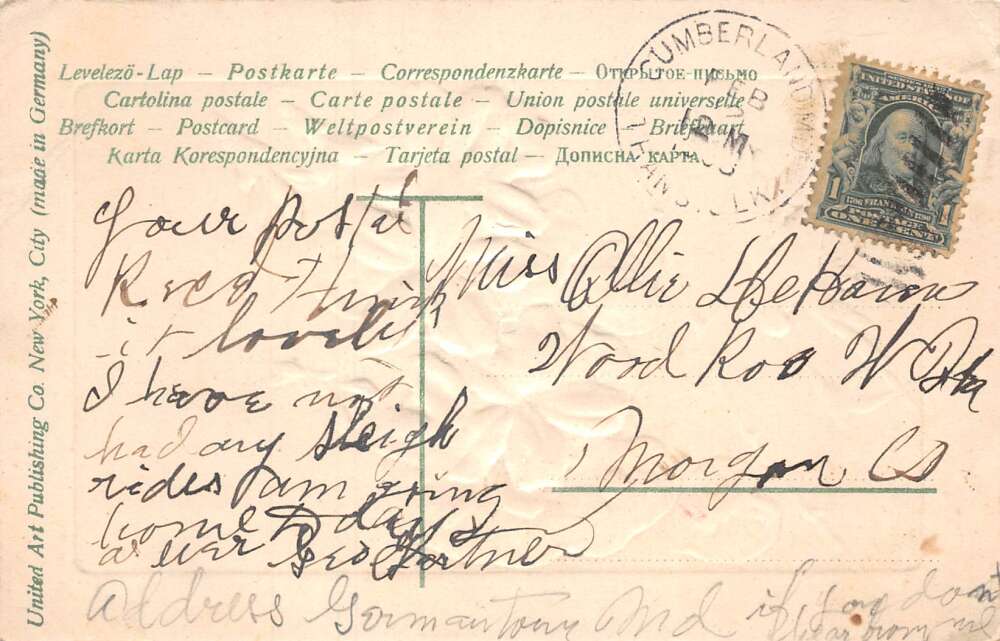 Levelező-Lap – Postkarte – Correspondenzkarte – Открытое-письмо
Cartolina postale – Carte postale – Union postale universelle
Brefkort – Postcard – Weltpostverein – Dopisnice – Briefkaart
Karta Korespondencyjna – Tarjeta postal – Дописна карта
United Art Publishing Co. New York, City (made in Germany)
CUMBERLAND, MD.
FEB
M
TRANS. CLK.
UNITED STATES OF
AMERICA
1 1
FRANKLIN
POSTAGE
ONE CENT
your postal
Recd Think
it lovely
I have not
had any sleigh
rides I am going
home to day
as ever
Address Germantown Md if you dont
hear from me
Miss Ollie DeHaven
Wood Roe W Va
Morgan Co